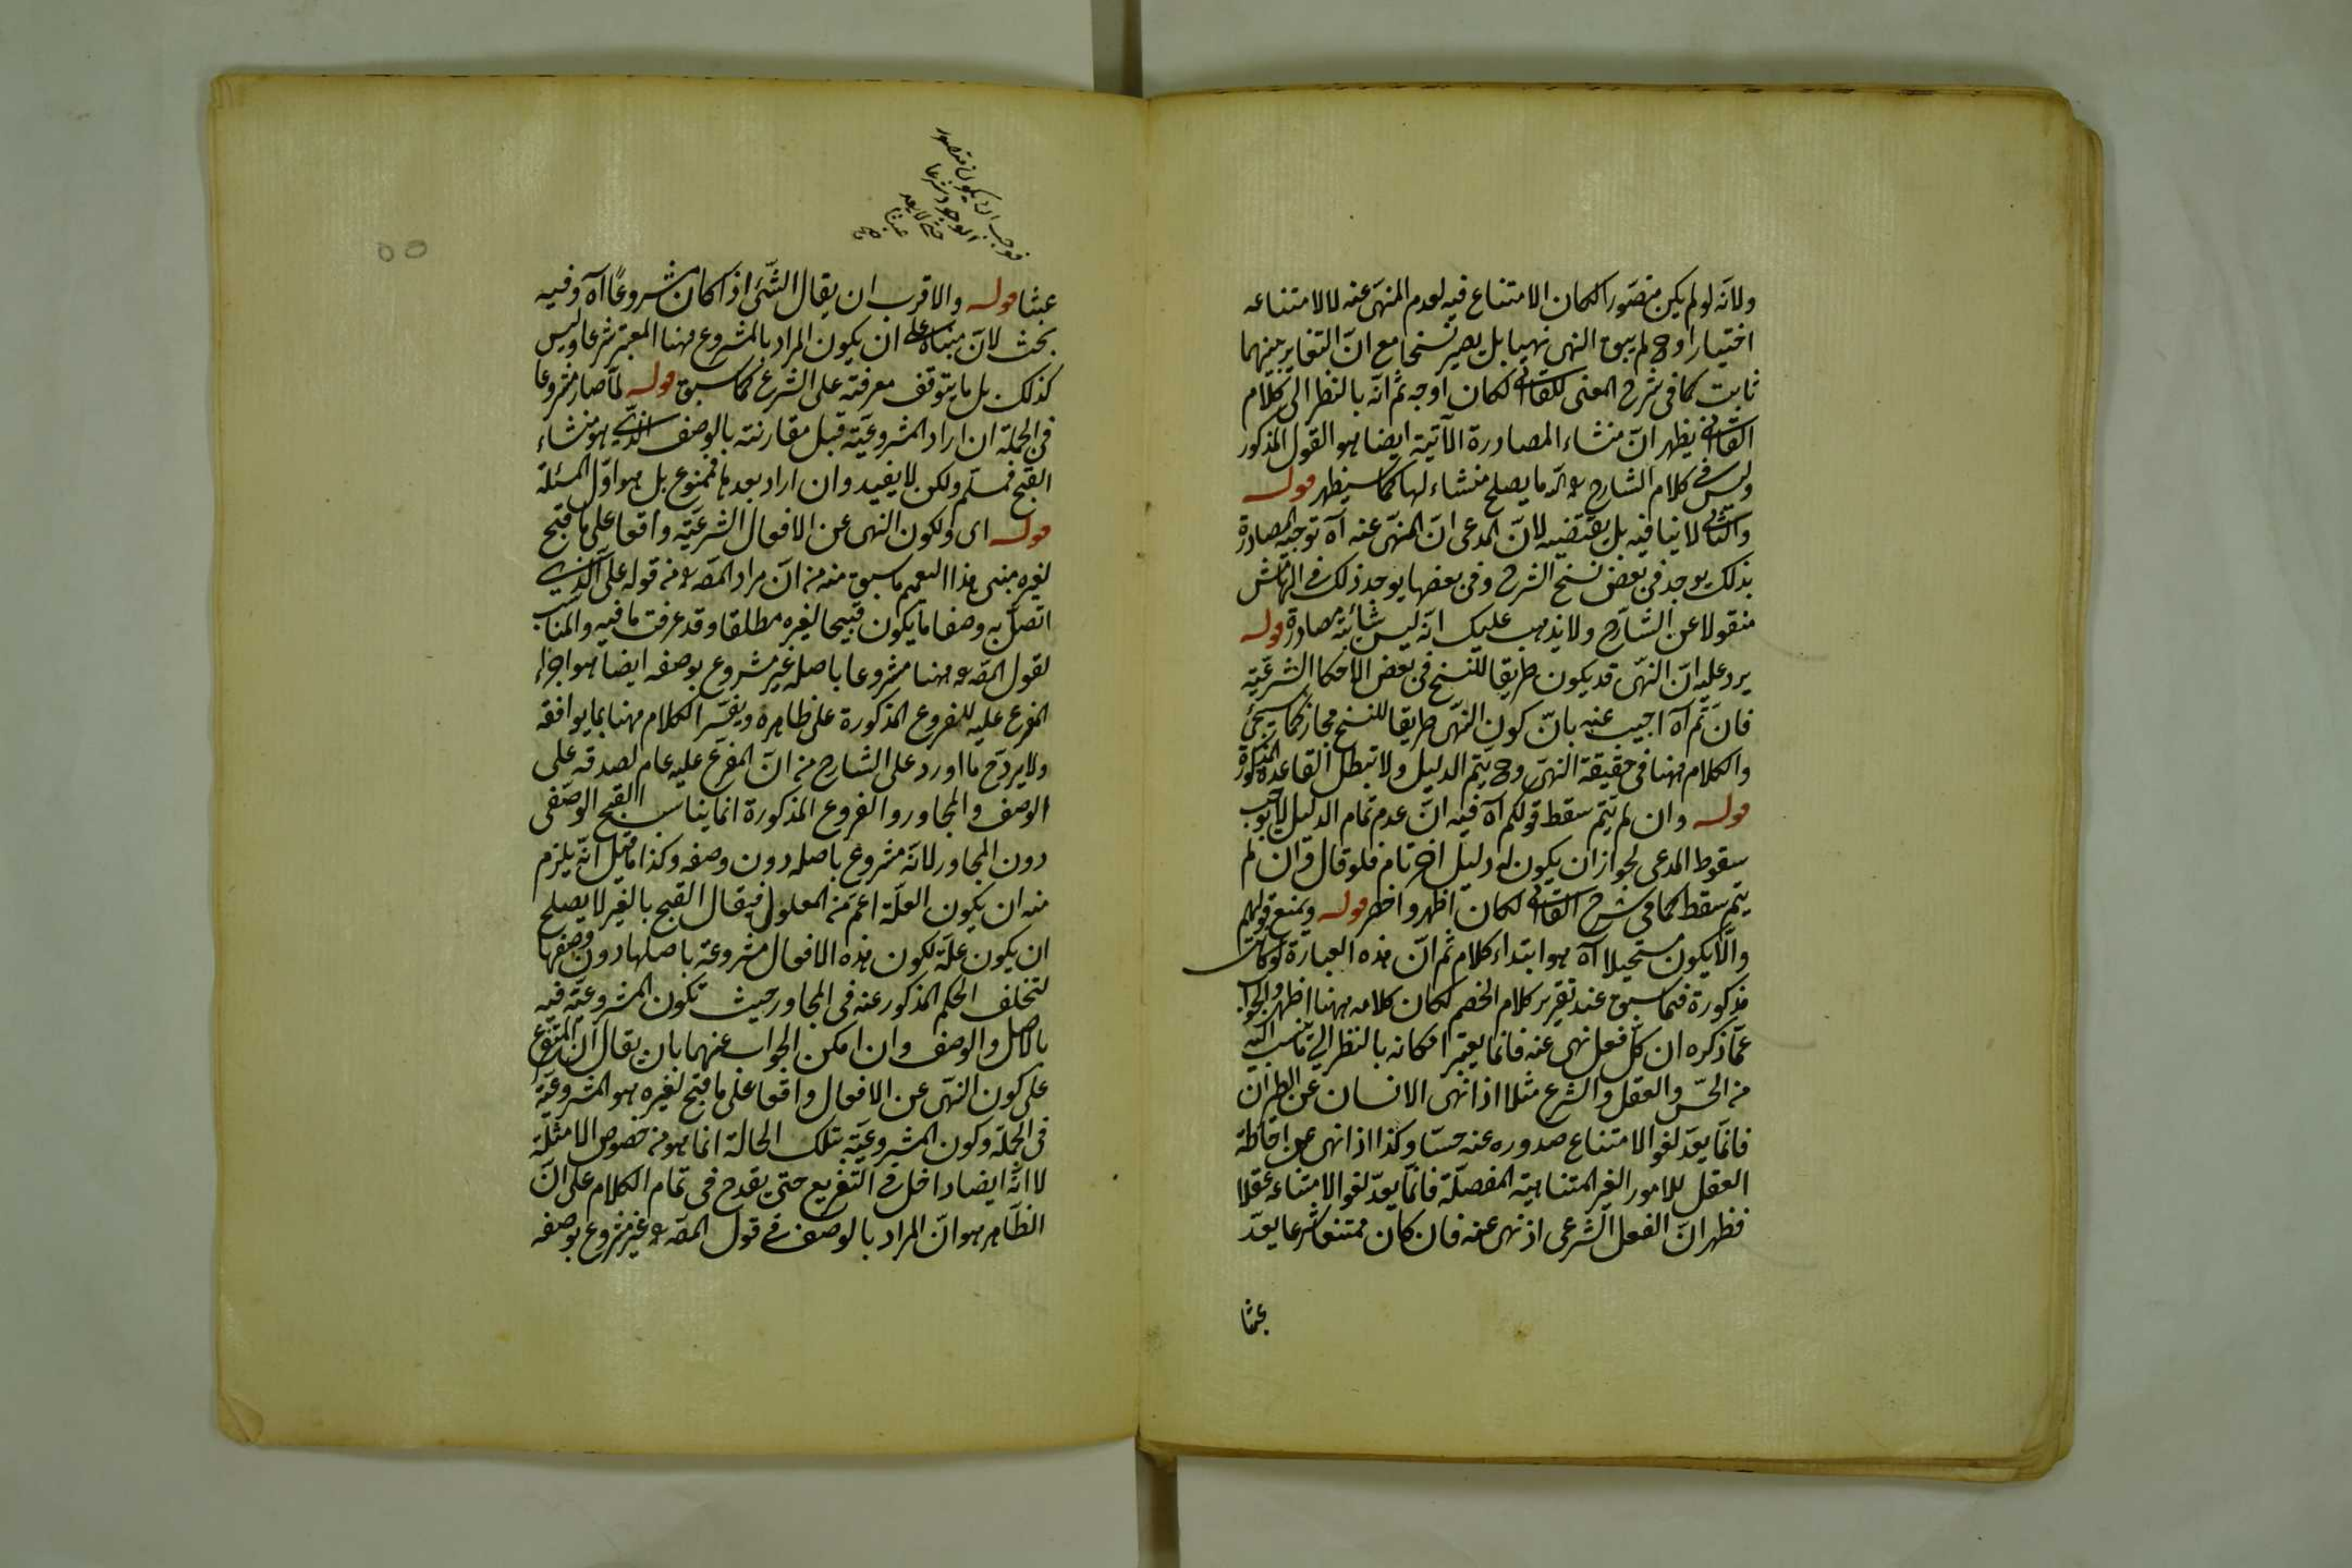 ولانه لو لم يكن متصورا لكان الامتناع فيه لعدم المنهى عنه لا لامتناعه
اختيارا وح لم يبق النهى نهيا بل يصير نسخا مع ان التغاير بينهما
ثابت كما فى شرح المغنى للقاآنى لكان اوجه ثم انه بالنظر الى كلام
القاآنى يظهر ان منشاء المصادرة الآتية ايضا هو القول المذكور
وليس فى كلام الشارح ما يصلح منشاء لها كما سيظهر قوله
والثانى لا ينافيه بل يقتضيه لان المدعى ان المنهى عنه آه توجيه المصادرة
بذلك يوجد فى بعض نسخ الشرح وفى بعضها يوجد ذلك فى الهامش
منقولا عن الشارح ولا يذهب عليك انه ليس شائبة مصادرة قوله
يرد عليه ان النهى قد يكون طريقا للنسخ فى بعض الاحكام الشرعية
فان تم آه اجيب عنه بان كون النهى طريقا للنسخ مجاز كما سيجئ
والكلام ههنا فى حقيقة النهى وح يتم الدليل ولا تبطل القاعدة المذكورة
قوله وان لم يتم سقط قولكم آه فيه ان عدم تمام الدليل لا يوجب
سقوط المدعى لجواز ان يكون له دليل اخر تام فلو قال وان لم
يتم سقط كما فى شرح القاآنى لكان اظهر واخصر قوله ويمنع قولهم
والا يكون مستحيلا آه هو ابتداء كلام ثم ان هذه العبارة لو كانت
مذكورة فيما سبق عند تقرير كلام الخصم لكان كلامه ههنا اظهر والجواب
عما ذكره ان كل فعل نهى عنه فانما يعتبر امكانه بالنظر الى ما نسب اليه
من الحس والعقل والشرع مثلا اذا نهى الانسان عن الطيران
فانما يعد لغوا لامتناع صدوره عنه حسا وكذا اذا نهى عن احاطة
العقل للامور الغير المتناهية المفصلة فانما يعد لغوا لامتناعه عقلا
فظهر ان الفعل الشرعى اذ نهى عنه فان كان ممتنعا شرعا يعد
عبثا
فوجب ان يكون متصور
الوجود شرعا
حتى لا يعد
عبثا قوله والاقرب ان يقال الشئ اذا كان مشروعا آه وفيه
بحث لان مبناه على ان يكون المراد بالمشروع ههنا المعتبر شرعا وليس
كذلك بل ما يتوقف معرفته على الشرع كما سبق قوله لما صار مشروعا
فى الجملة ان اراد المشروعية قبل مقارنته بالوصف الذى هو منشاء
القبح فمسلم ولكن لا يفيد وان اراد بعدها فممنوع بل هو اول المسئلة
قوله اى ولكون النهى عن الافعال الشرعية واقعا على ما قبح
لغيره مبنى هذا التعميم ما سبق منه من ان مراد المص من قوله على الذى
اتصل به وصفا ما يكون قبيحا لغيره مطلقا وقد عرفت ما فيه والمناسب
لقول المص ههنا مشروعا باصله غير مشروع بوصفه ايضا هو اجراء
المفرع عليه للفروع المذكورة على ظاهره ويفسر الكلام ههنا بما يوافقه
ولا يرد ح ما اورد على الشارح من ان المفرع عليه عام لصدقه على
الوصف والمجاور والفروع المذكورة انما يناسب القبح الوصفى
دون المجاور لانه مشروع باصله دون وصفه وكذا ما قيل انه يلزم
منه ان يكون العلة اعم من المعلول فيقال القبح بالغير لا يصلح
ان يكون علة لكون هذه الافعال مشروعة باصلها دون وصفها
لتخلف الحكم المذكور عنه فى المجاور حيث تكون المشروعية فيه
بالاصل والوصف وان امكن الجواب عنهما بان يقال ان المتفرع
على كون النهى عن الافعال واقعا على ما قبح لغيره هو المشروعية
فى الجملة وكون المشروعية بتلك الحالة انما هو من خصوص الامثلة
لا انه ايضا داخل فى التفريع حتى يقدح فى تمام الكلام على ان
الظاهر هو ان المراد بالوصف فى قول المص غير مشروع بوصفه